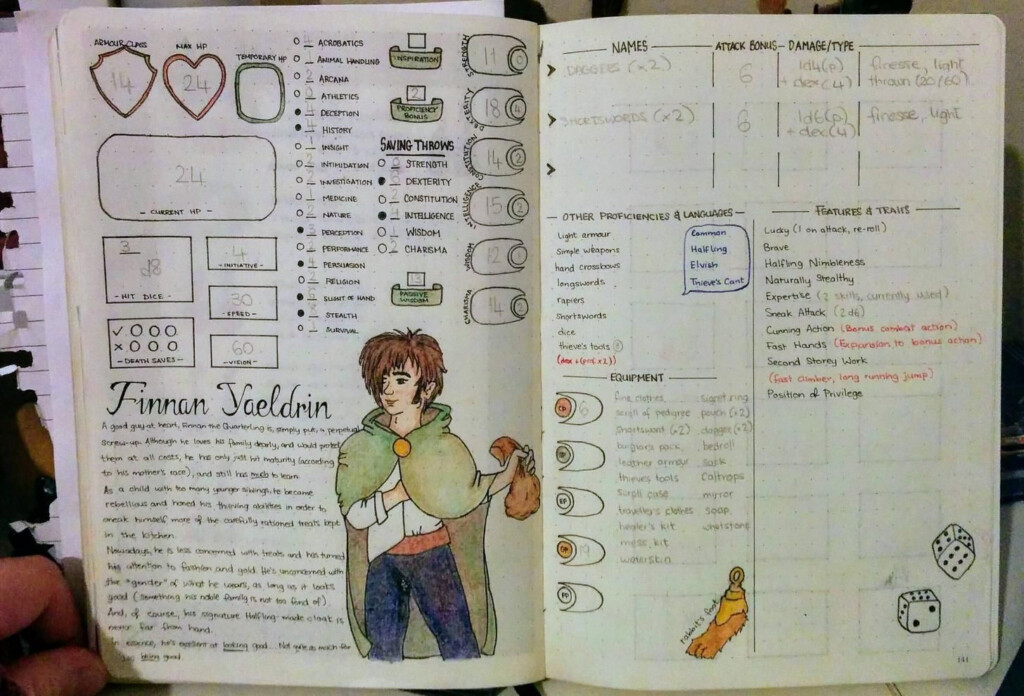 ARMOUR CLASS
14
MAX HP
24
TEMPORARY HP
24
- CURRENT HP -
3
d8
- HIT DICE -
4
- INITIATIVE -
30
- SPEED -
- DEATH SAVES -
60
- VISION -
4 ACROBATICS
1 ANIMAL HANDLING
2 ARCANA
2 ATHLETICS
4 DECEPTION
4 HISTORY
1 INSIGHT
2 INTIMIDATION
2 INVESTIGATION
1 MEDICINE
2 NATURE
3 PERCEPTION
2 PERFORMANCE
4 PERSUASION
2 RELIGION
SLEIGHT OF HAND
8 STEALTH
1 SURVIVAL
INSPIRATION
2
PROFICIENCY BONUS
SAVING THROWS
0 STRENGTH
6 DEXTERITY
2 CONSTITUTION
4 INTELLIGENCE
1 WISDOM
2 CHARISMA
13
PASSIVE WISDOM
STRENGTH
11
0
DEXTERITY
18
4
CONSTITUTION
14
2
INTELLIGENCE
15
2
WISDOM
12
1
CHARISMA
14
2
Finnan Yaeldrin
A good guy at heart, Finnan the Quarterling is, simply put, a perpetual
screw-up. Although he loves his family dearly, and would protect
them at all costs, he has only just hit maturity (according
to his mother's race), and still has much to learn.
As a child with too many younger siblings, he became
rebellious and honed his thieving abilities in order to
sneak himself more of the carefully rationed treats kept
in the kitchen.
Nowadays, he is less concerned with treats and has turned
his attention to fashion and gold. He's unconcerned with
the "gender" of what he wears, as long as it looks
good (something his noble family is not too fond of).
And, of course, his signature Halfling-made cloak is
never far from hand.
In essence, he's excellent at looking good... Not quite as much for
being good.
NAMES
ATTACK BONUS
DAMAGE/TYPE
DAGGERS (x2)
6
1d4(p)
+ dex(4)
finesse, light
thrown (20/60)
SHORTSWORDS (x2)
6
1d6(p)
+ dex(4)
finesse, light
OTHER PROFICIENCIES & LANGUAGES
Light armour
Simple weapons
hand crossbows
longswords
rapiers
shortswords
dice
thieve's tools 8
(dex + (prof x2))
Common
Halfling
Elvish
Thieve's Cant
FEATURES & TRAITS
Lucky (1 on attack, re-roll)
Brave
Halfling Nimbleness
Naturally Stealthy
Expertise (2 skills, currently used)
Sneak Attack (2d6)
Cunning Action (Bonus combat action)
Fast Hands (Expansion to bonus action)
Second Storey Work
(fast climber, long running jump)
Position of Privilege
EQUIPMENT
CP
6
SP
EP
GP
19
PP
fine clothes
scroll of pedigree
shortsword (x2)
burglar's pack
leather armour
thieves tools
scroll case
traveller's clothes
healer's kit
mess kit
waterskin
signet ring
pouch (x2)
dagger (x2)
bedroll
sack
caltrops
mirror
soap
whetstone
rabbit's foot
141